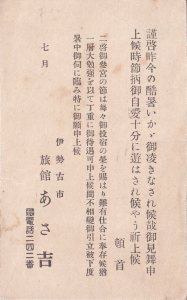 謹啓昨今の酷暑いかゞ御凌ぎなされ候哉御見舞申
上候時節柄御自愛十分に遊はされ候やう祈上候
頓首
二啓御參宮の節は每々御投宿の榮を賜はり難有仕合に奉存候猶
一層大勉强を以て丁重に御待遇可申上候間不相變御引立被下度
暑中御伺に臨み特に御願申上候
七月
伊勢古市
旅館 あさ吉
電話二四二番